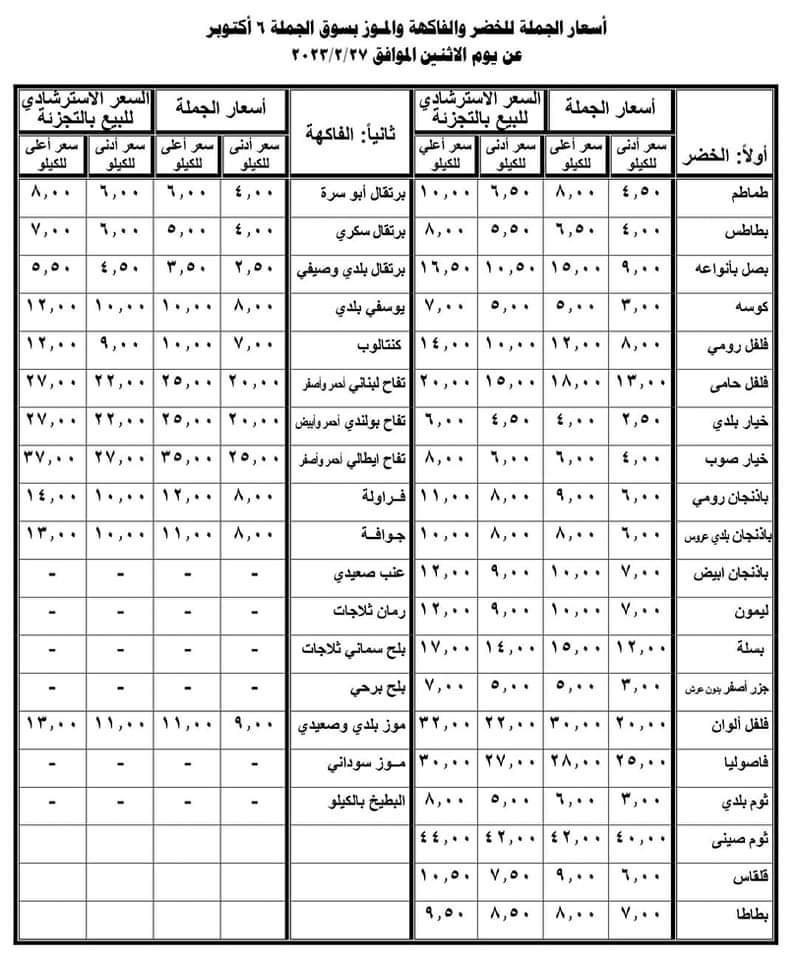 أسعار الجملة للخضر والفاكهة والموز بسوق الجملة ٦ أكتوبر
عن يوم الاثنين الموافق ٢٠٢٣/٢/٢٧
أولاً: الخضر أسعار الجملة السعر الاسترشادي للبيع بالتجزئة ثانياً: الفاكهة أسعار الجملة السعر الاسترشادي للبيع بالتجزئة
سعر أدنى للكيلو سعر أعلى للكيلو سعر أدنى للكيلو سعر أعلي للكيلو سعر أدنى للكيلو سعر أعلى للكيلو سعر أدنى للكيلو سعر أعلى للكيلو
طماطم ٤,٥٠ ٨,٠٠ ٦,٥٠ ١٠,٠٠ برتقال أبو سرة ٤,٠٠ ٦,٠٠ ٦,٠٠ ٨,٠٠
بطاطس ٤,٠٠ ٦,٥٠ ٥,٥٠ ٨,٠٠ برتقال سكري ٤,٠٠ ٥,٠٠ ٦,٠٠ ٧,٠٠
بصل بأنواعه ٩,٠٠ ١٥,٠٠ ١٠,٥٠ ١٦,٥٠ برتقال بلدي وصيفي ٢,٥٠ ٣,٥٠ ٤,٥٠ ٥,٥٠
كوسه ٣,٠٠ ٥,٠٠ ٥,٠٠ ٧,٠٠ يوسفي بلدي ٨,٠٠ ١٠,٠٠ ١٠,٠٠ ١٢,٠٠
فلفل رومي ٨,٠٠ ١٢,٠٠ ١٠,٠٠ ١٤,٠٠ كنتالوب ٧,٠٠ ١٠,٠٠ ٩,٠٠ ١٢,٠٠
فلفل حامى ١٣,٠٠ ١٨,٠٠ ١٥,٠٠ ٢٠,٠٠ تفاح لبناني أحمر وأصفر ٢٠,٠٠ ٢٥,٠٠ ٢٢,٠٠ ٢٧,٠٠
خيار بلدي ٢,٥٠ ٤,٠٠ ٤,٥٠ ٦,٠٠ تفاح بولندي أحمر وأبيض ٢٠,٠٠ ٢٥,٠٠ ٢٢,٠٠ ٢٧,٠٠
خيار صوب ٤,٠٠ ٦,٠٠ ٦,٠٠ ٨,٠٠ تفاح ايطالي أحمر وأصفر ٢٥,٠٠ ٣٥,٠٠ ٢٧,٠٠ ٣٧,٠٠
باذنجان رومي ٦,٠٠ ٩,٠٠ ٨,٠٠ ١١,٠٠ فراولة ٨,٠٠ ١٢,٠٠ ١٠,٠٠ ١٤,٠٠
باذنجان بلدي عروس ٦,٠٠ ٨,٠٠ ٨,٠٠ ١٠,٠٠ جوافة ٨,٠٠ ١١,٠٠ ١٠,٠٠ ١٣,٠٠
باذنجان ابيض ٧,٠٠ ١٠,٠٠ ٩,٠٠ ١٢,٠٠ عنب صعيدي - - - -
ليمون ٧,٠٠ ١٠,٠٠ ٩,٠٠ ١٢,٠٠ رمان ثلاجات - - - -
بسلة ١٢,٠٠ ١٥,٠٠ ١٤,٠٠ ١٧,٠٠ بلح سماني ثلاجات - - - -
جزر أصفر بدون عرش ٣,٠٠ ٥,٠٠ ٥,٠٠ ٧,٠٠ بلح برحي - - - -
فلفل ألوان ٢٠,٠٠ ٣٠,٠٠ ٢٢,٠٠ ٣٢,٠٠ موز بلدي وصعيدي ٩,٠٠ ١١,٠٠ ١١,٠٠ ١٣,٠٠
فاصوليا ٢٥,٠٠ ٢٨,٠٠ ٢٧,٠٠ ٣٠,٠٠ موز سوداني - - - -
ثوم بلدي ٣,٠٠ ٦,٠٠ ٥,٠٠ ٨,٠٠ البطيخ بالكيلو - - - -
ثوم صينى ٤٠,٠٠ ٤٢,٠٠ ٤٢,٠٠ ٤٤,٠٠
قلقاس ٦,٠٠ ٩,٠٠ ٧,٥٠ ١٠,٥٠
بطاطا ٧,٠٠ ٨,٠٠ ٨,٥٠ ٩,٥٠